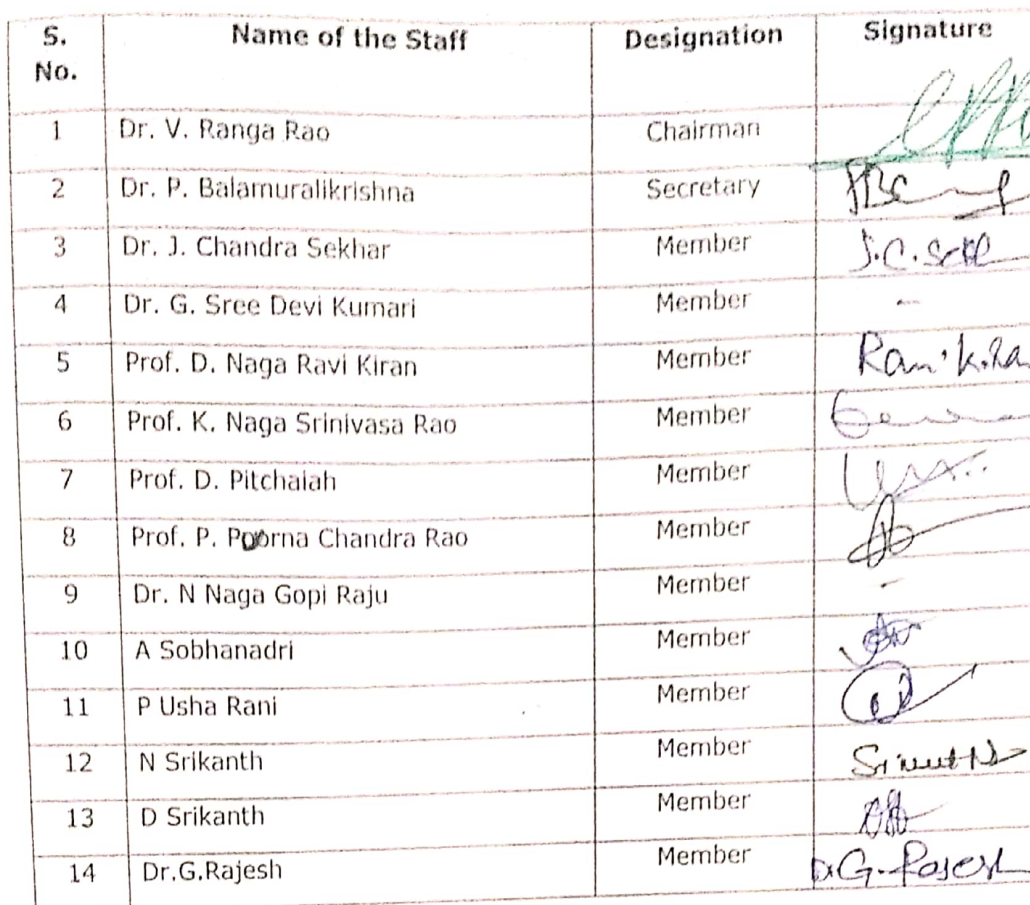 S. No. Name of the Staff Designation Signature
1 Dr. V. Ranga Rao Chairman
2 Dr. P. Balamuralikrishna Secretary
3 Dr. J. Chandra Sekhar Member J.C.Sekh
4 Dr. G. Sree Devi Kumari Member -
5 Prof. D. Naga Ravi Kiran Member
6 Prof. K. Naga Srinivasa Rao Member
7 Prof. D. Pitchaiah Member
8 Prof. P. Poorna Chandra Rao Member
9 Dr. N Naga Gopi Raju Member -
10 A Sobhanadri Member
11 P Usha Rani Member
12 N Srikanth Member
13 D Srikanth Member
14 Dr.G.Rajesh Member Dr.G.Rajesh